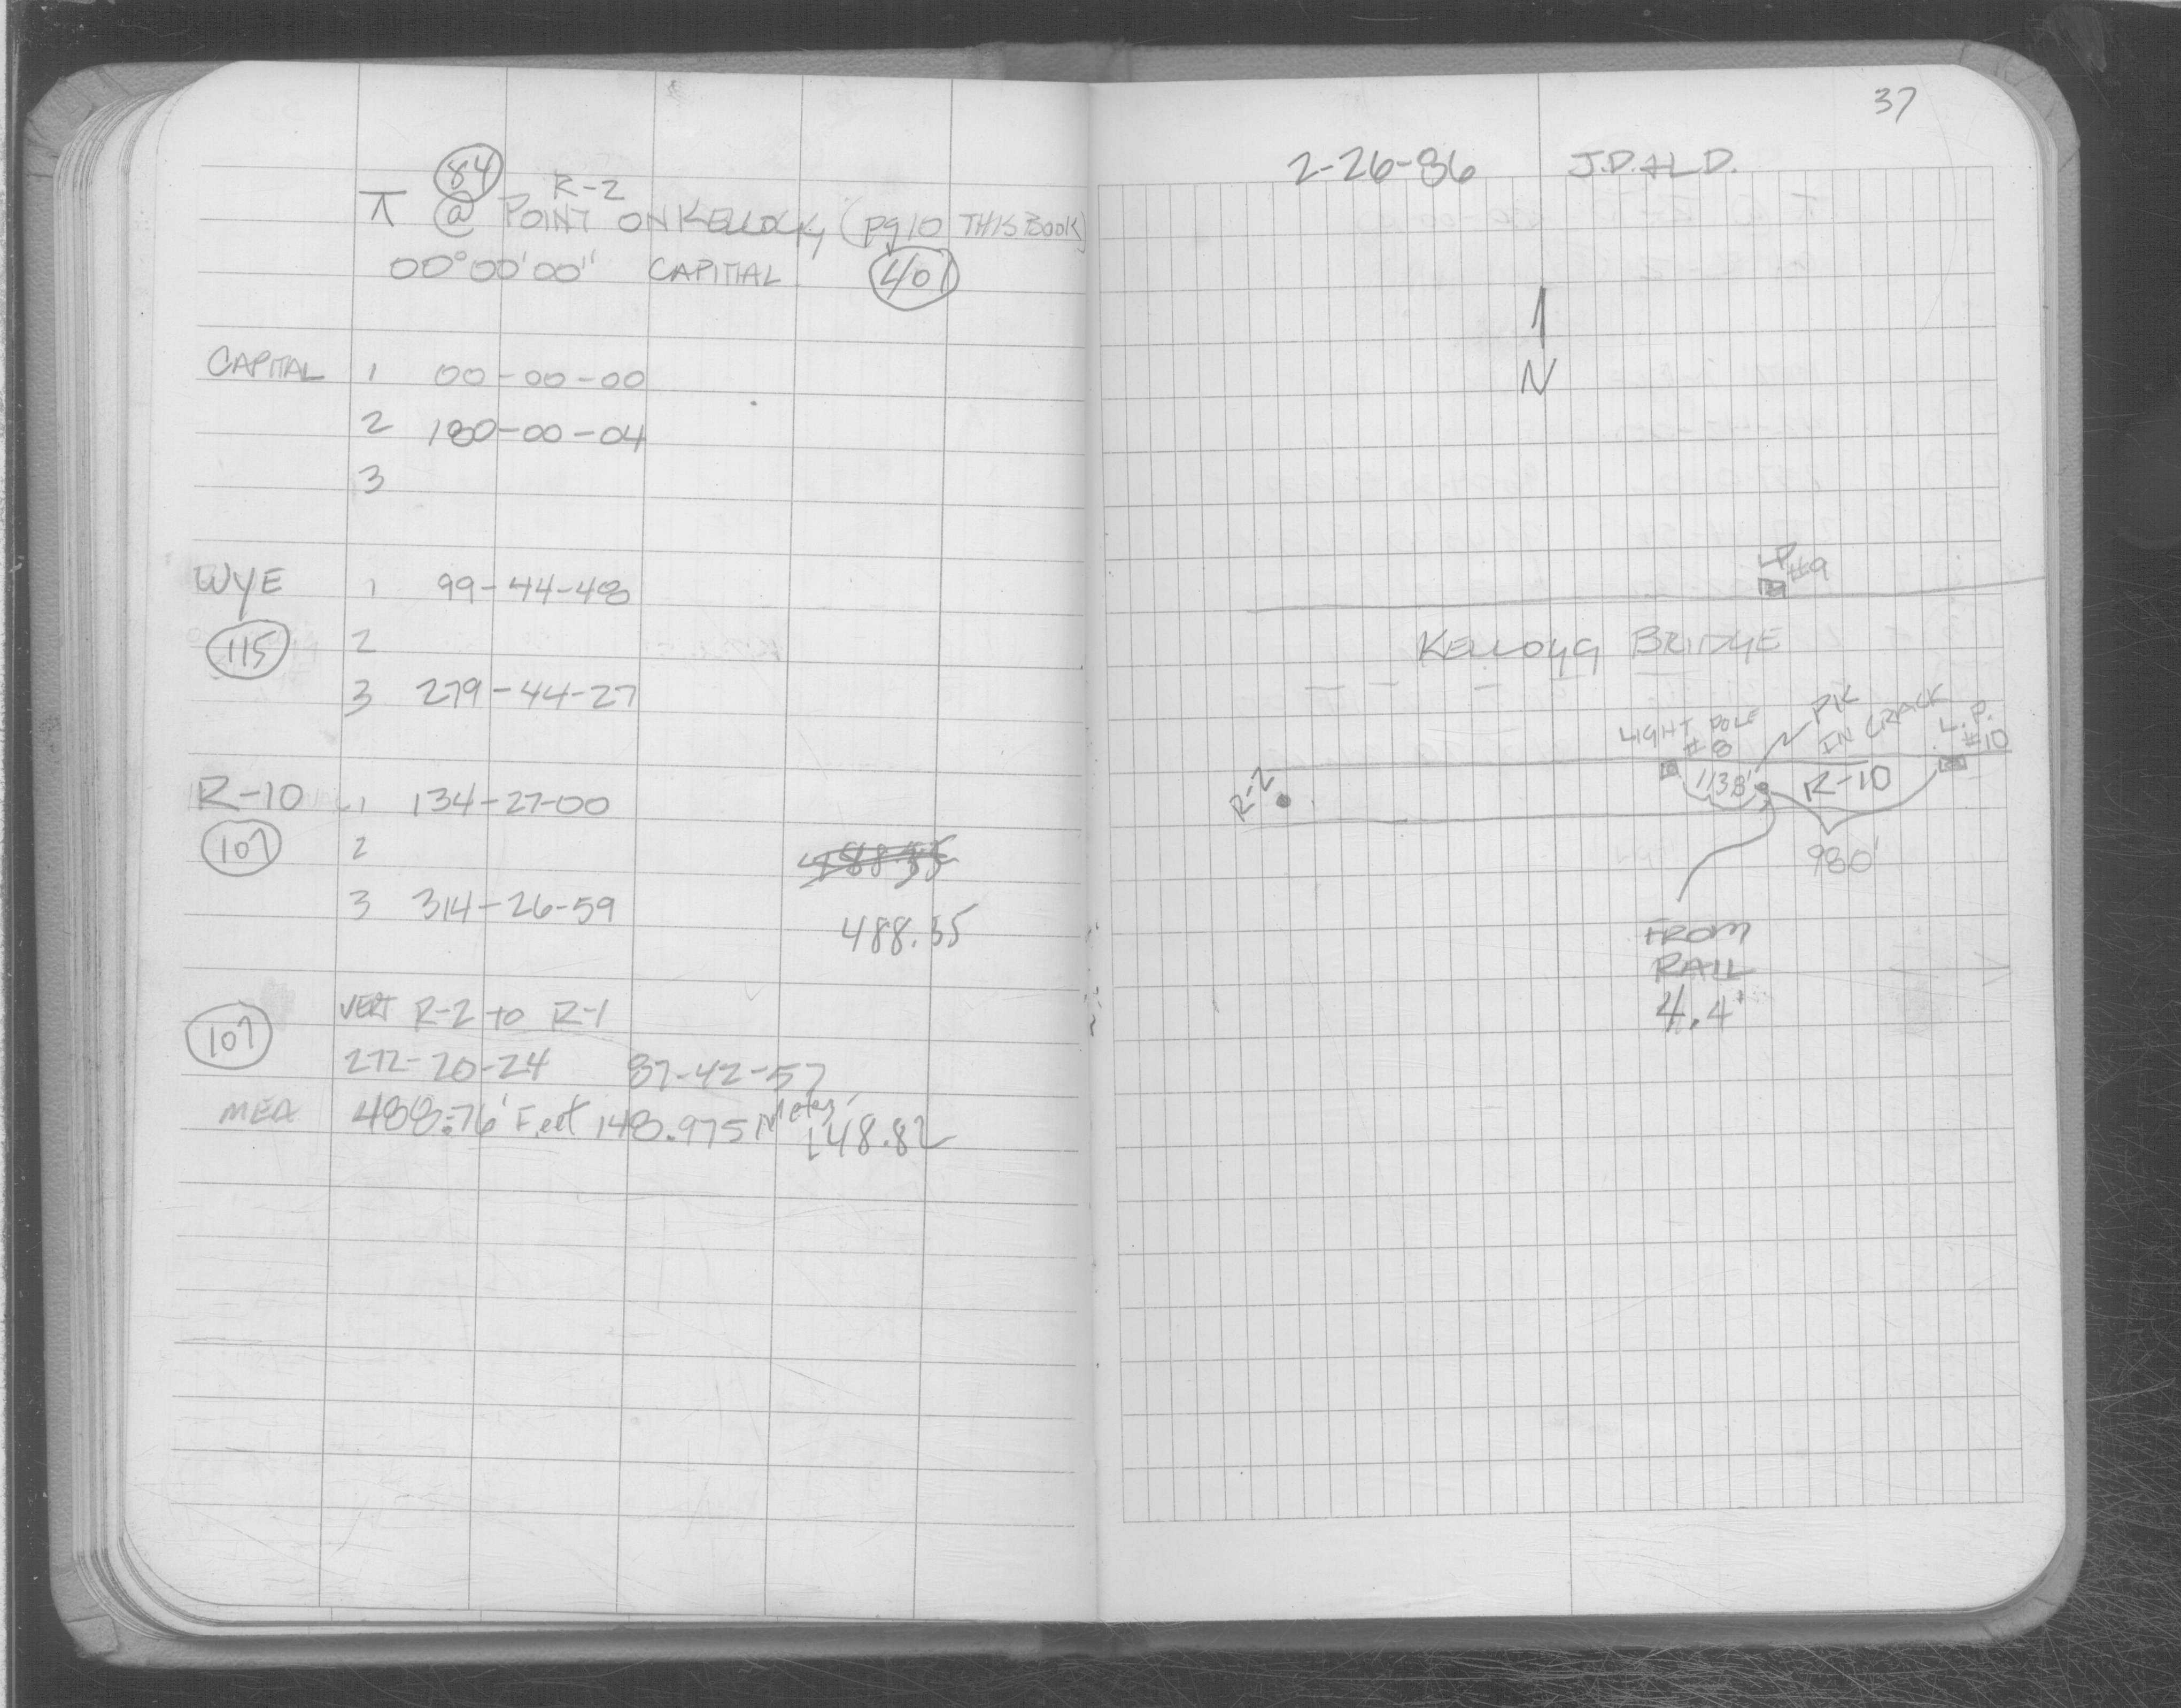 84
R-2
⊼ @ POINT ON KELLOGG (pg 10 THIS BOOK)
00°00'00" CAPITIAL 401
CAPITAL 1 00-00-00
2 180-00-04
3
WYE 1 99-44-48
115 2
3 279-44-27
R-10 1 134-27-00
107 2
488.35
3 314-26-59
488.35
VERT R-2 to R-1
107
272-20-24 87-42-57
MEA 488.76' Feet 148.975 Meters
148.82
37
2-26-86 J.D. & L.D.
N
LP #9
KELLOGG BRIDGE
LIGHT POLE
#8
PK
IN CRACK
L.P.
#10
R-2
1138'
R-10
980'
FROM
RAIL
4.4'